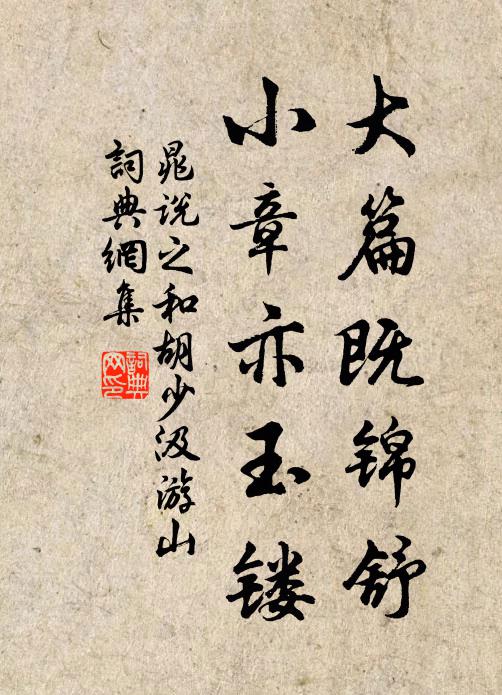 大篇既锦舒
小章亦玉镂
晁说之和胡少汲游山
詞典網集
詞典网印